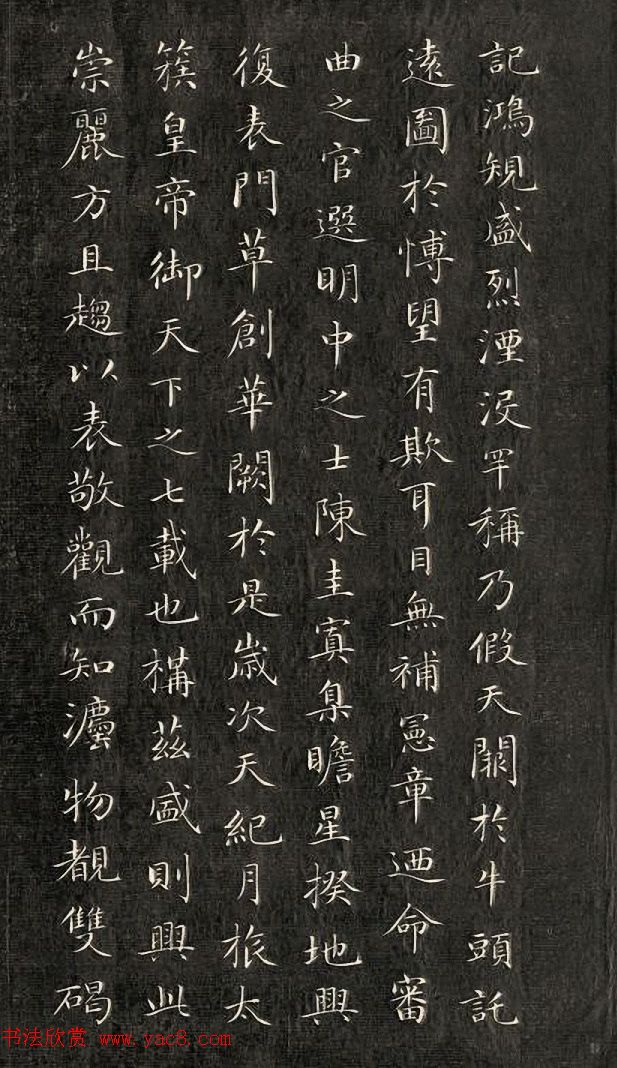 記鴻規盛烈湮没罕稱乃假天闕於牛頭託
遠圖於博望有欺耳目無補憲章迺命審
曲之官選明中之士陳圭寘臬瞻星揆地興
復表門草創華闕於是歲次天紀月旅太
簇皇帝御天下之七載也構茲盛則興此
崇麗方且趨以表敬觀而知法物覩雙碣
书法欣赏 www.yac8.com